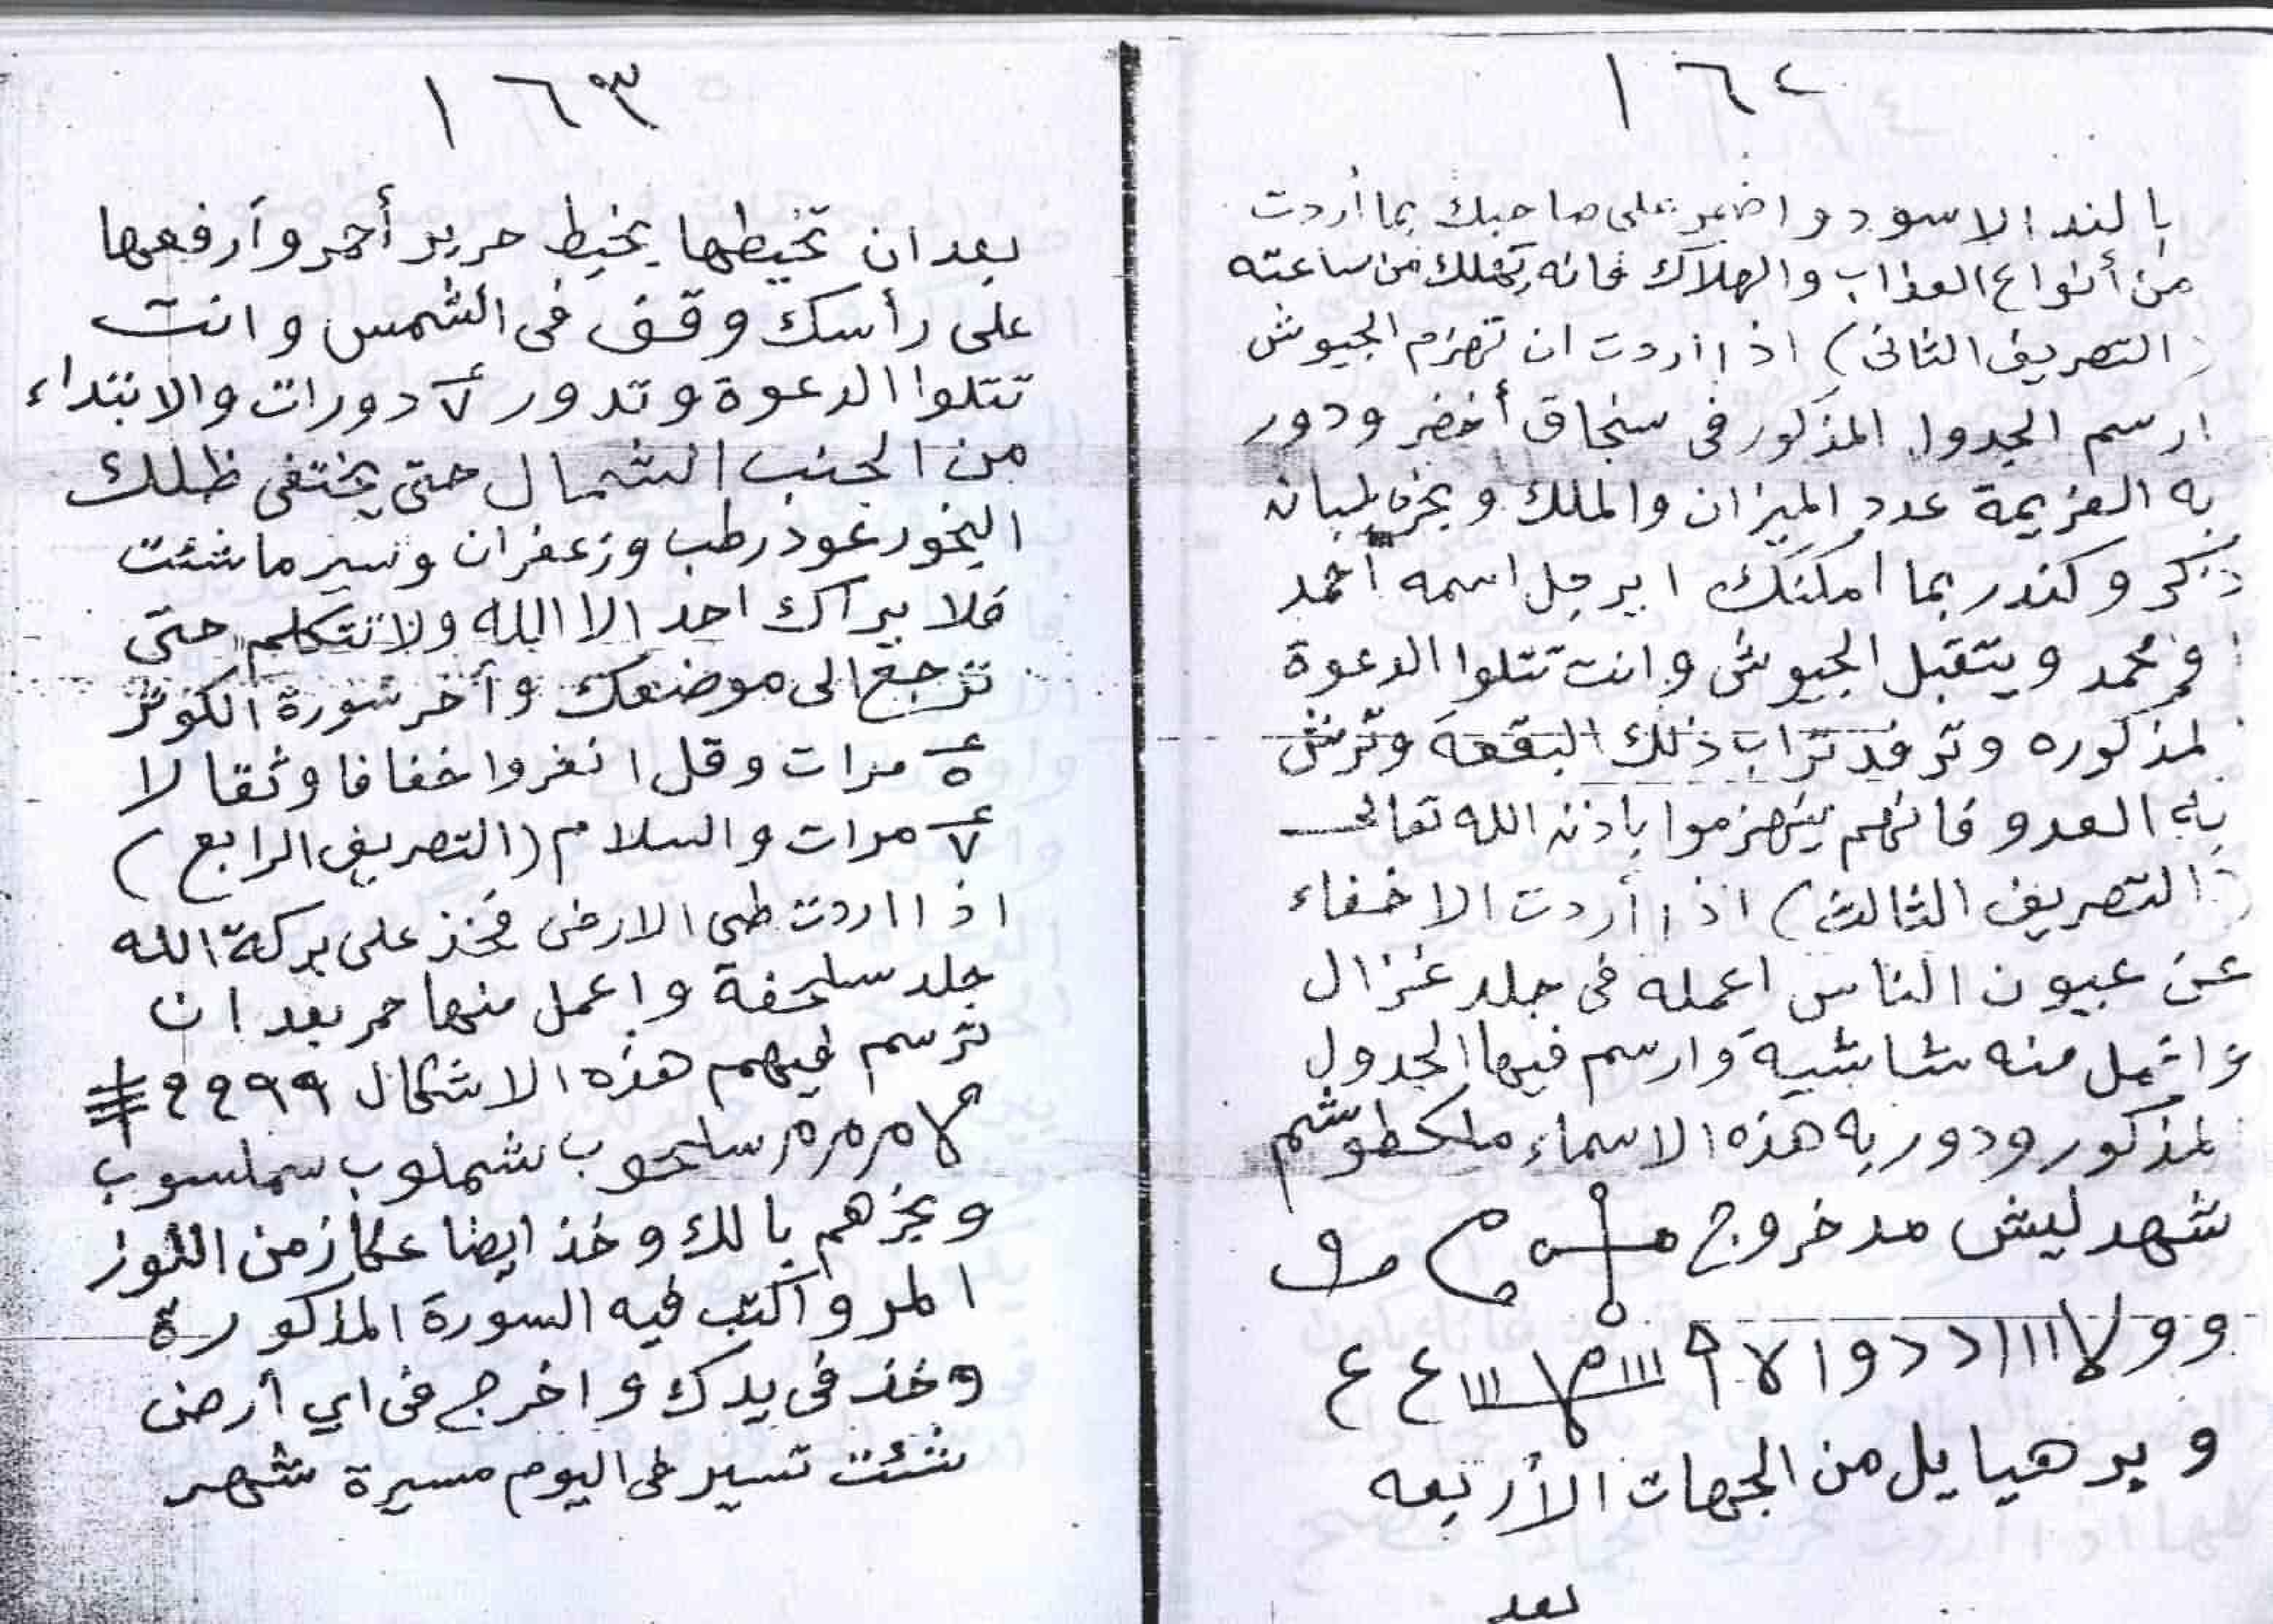 ١٦٢
بالند الاسود واضمر على صاحبك بما أردت
من أنواع العذاب والهلاك فانه يهلك من ساعته
(التصريف الثانى) اذا اردت ان تهزم الجيوش
ارسم الجدول المذكور فى سنجاق أخضر ودور
به العزيمة عدد الميزان والملك وبخره بلبان
ذكر وكندر بما امكنك ايرجل اسمه أحمد
محمد ويتقبل الجيوش وانت تتلوا الدعوة
لمذكوره وترفد تراب ذلك البقعة وترش
به العدو فانهم ينهزموا باذن الله تعالى
(التصريف الثالث) اذا أردت الاخفاء
عن عيون الناس اعمله فى جلد غزال
واعمل منه شاشية وارسم فيها الجدول
لمذكور ودور به هذه الاسماء ملكطوشم
شهد ليش مدخروج
وولا ااا د د و ا لا ع ع
وبرهيايل من الجهات الأربعه
بعد
١٦٣
بعد ان تخيطها بخيط حرير أحمر وأرفعها
على رأسك وقف فى الشمس وانت
تتلوا الدعوة وتدور ٧ دورات والابتداء
من الجنب الشمال حتى يختفى ظلك
البخور عود رطب وزعفران وسير ما شئت
فلا يراك احد الا الله ولا تتكلم حتى
ترجع الى موضعك وأخر سورة الكوثر
٥ مرات وقل انفروا خفافا وثقالا
٧ مرات والسلام (التصريف الرابع)
اذا اردت طى الارض فخذ على بركة الله
جلد سلحفة واعمل منها حمر بعد ان
ترسم فيهم هذه الاشكال ٩٩
سلحوب شملوب سملسوب
وبخرهم بالك وخذ ايضا عكاز من اللوز
المر واكتب فيه السورة المذكورة
وخذ فى يدك واخرج فى اي أرض
شئت تسير فى اليوم مسيرة شهر